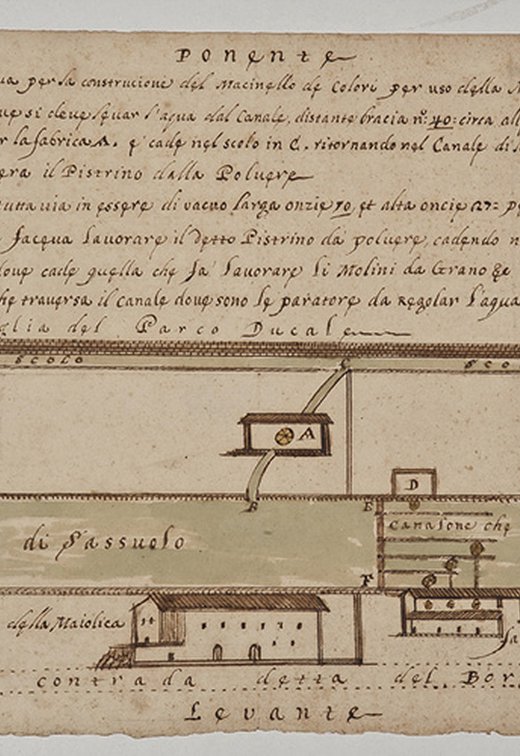 Ponente
ua per la construcione del Macinello de Colori per uso della M
ue si deve levar l'aqua dal Canale, distante bracia n.º 40: circa all
r la fabrica A. e cade nel scolo in C. ritornando nel Canale di S
era il Pistrino dalla Poluere
tutta uia in essere di vacuo larga onzie 10, et alta oncie 27: pe
Jacqua lavorare il detto Pistrino da poluere, cadendo n
doue cade quella che fa lavorare li Molini da Grano
che traversa il Canale doue sono le paratore da regolar l'aqua
glia del Parco Ducale
SCOLO
C
SCO
A
D
B
E
Canalone che
di Sassuolo
F
della Maiolica
fa
contrada detta del Bor
Levante